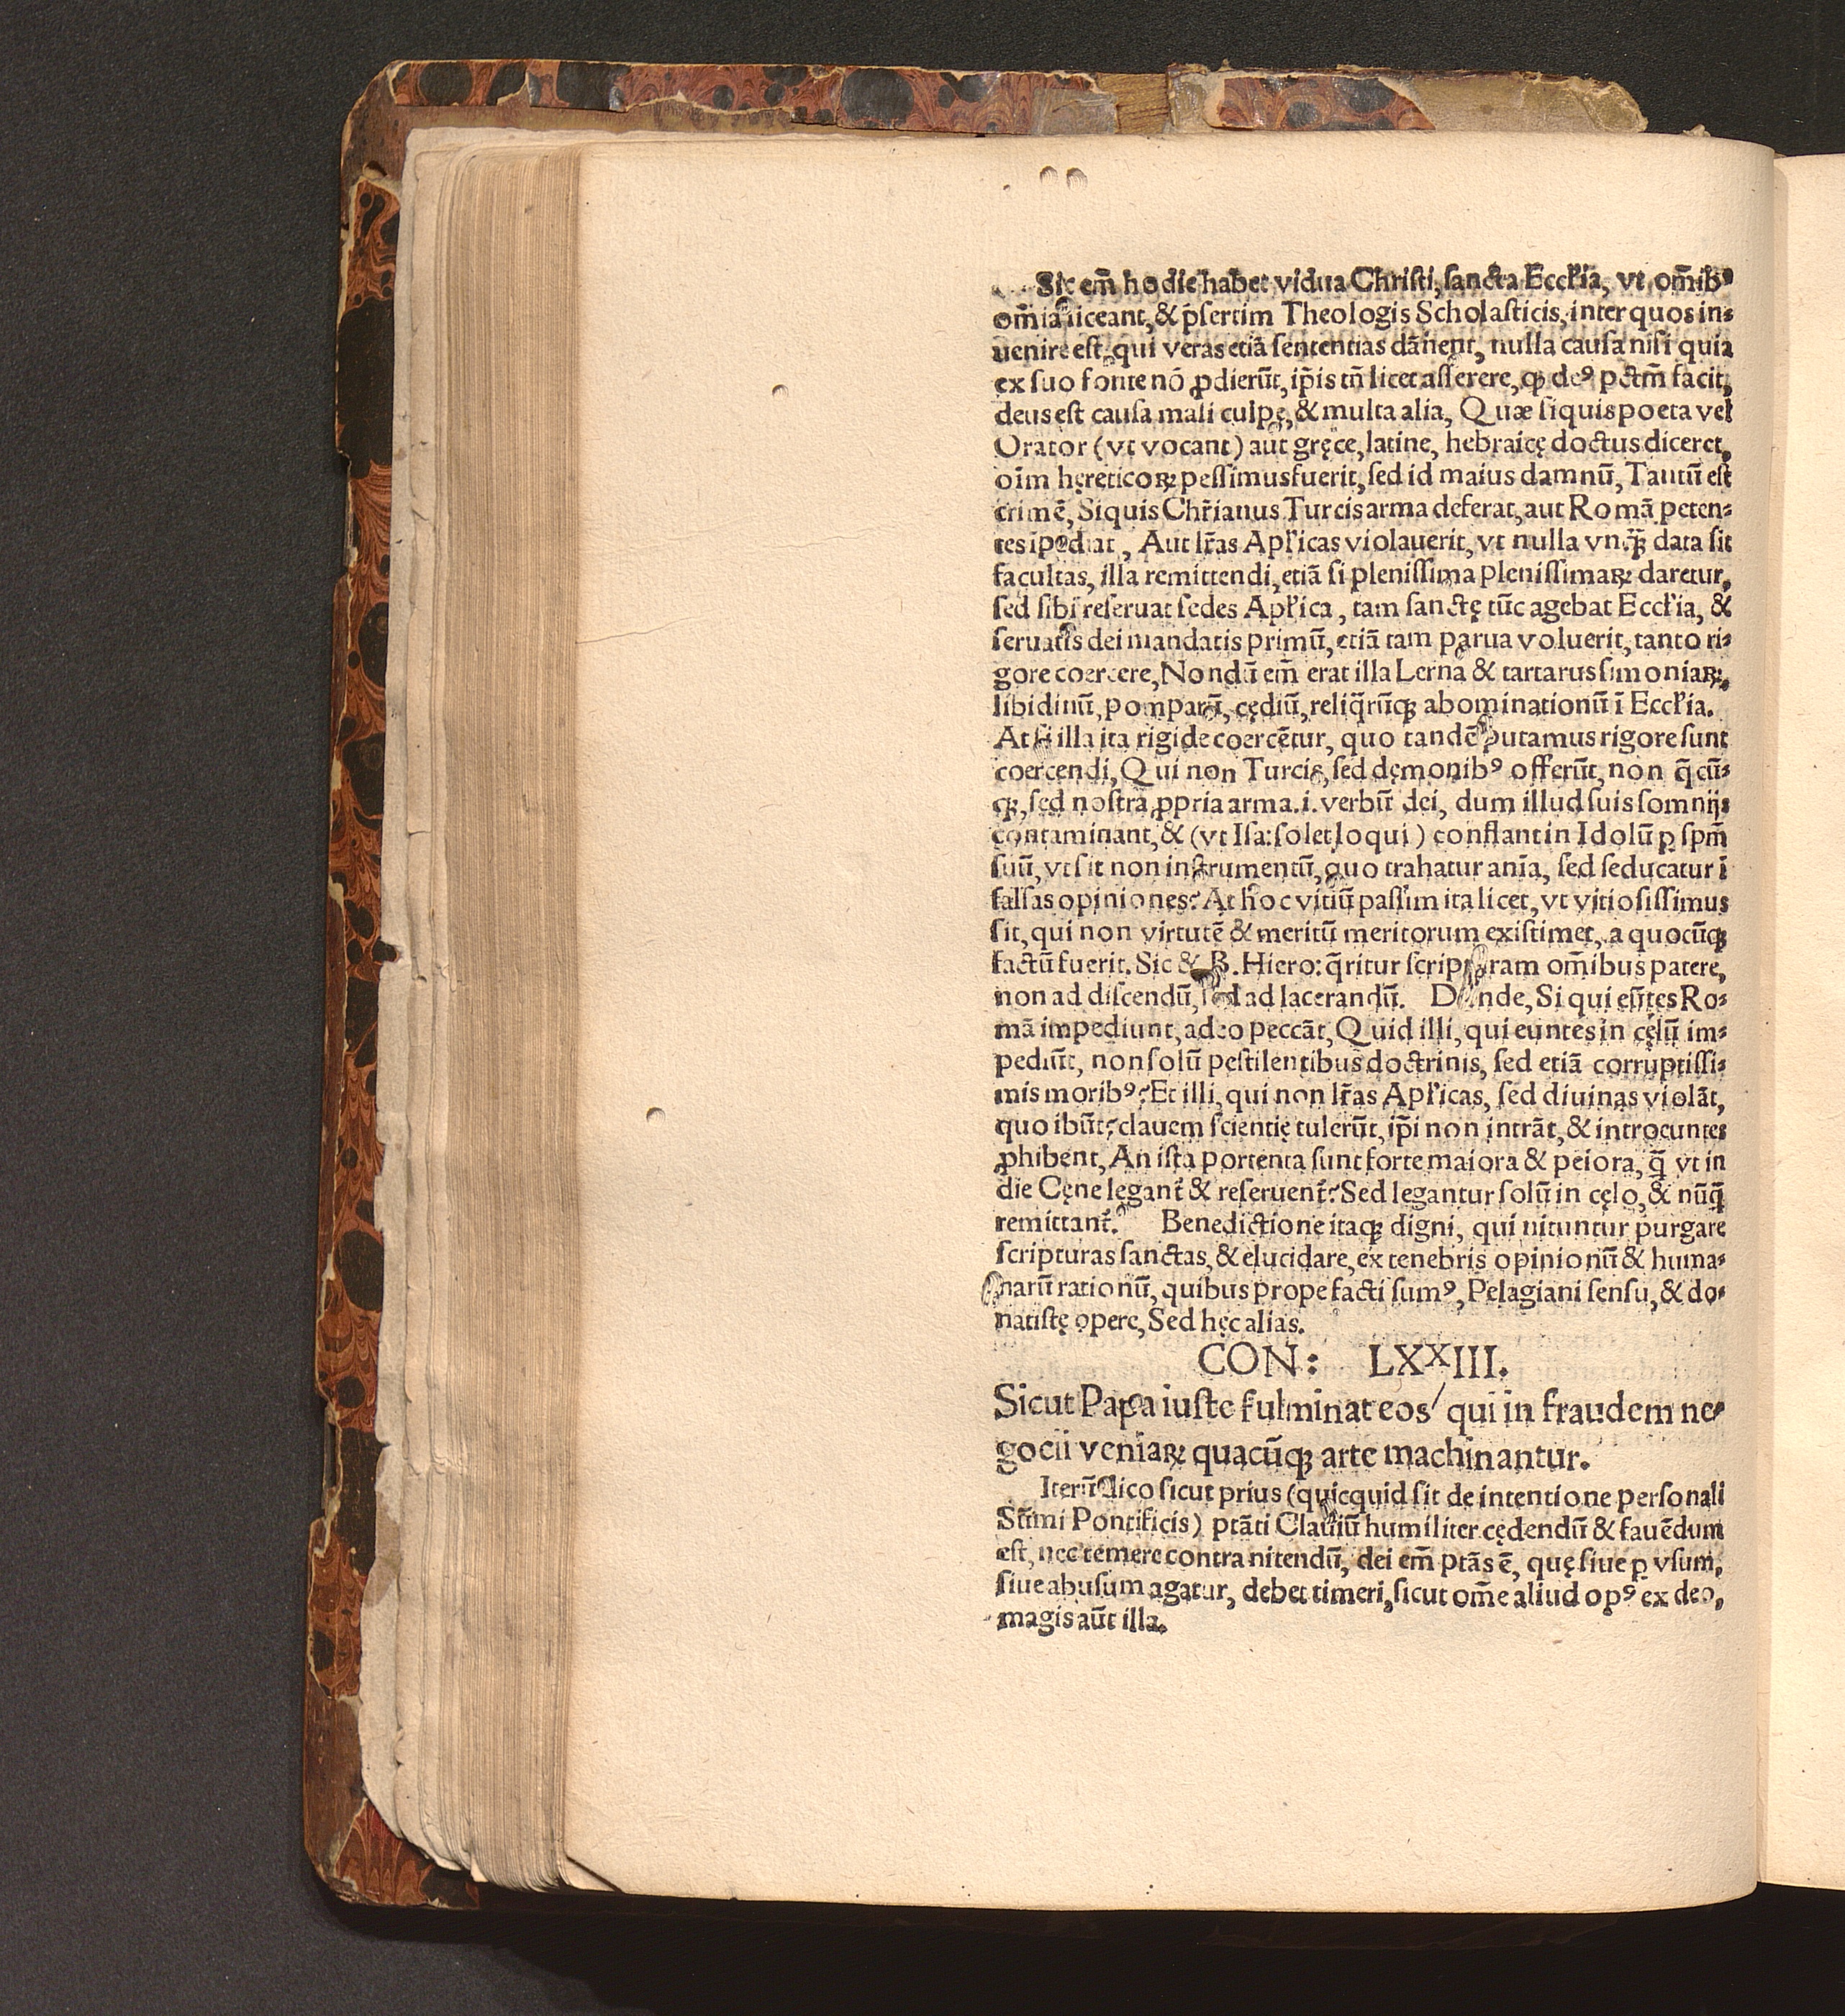 Sic em̃ hodie habet vidua Christi, sancta Eccɫ'ia, vt om̃ibꝰ
om̃ia liceant, & p̃sertim Theologis Scholasticis, inter quos in⸗
uenire est, qui veras etiã sententias dãnent, nulla causa nisi quia
ex suo fonte nõ ꝓdierũt, ip̃is tñ licet asserere, ꝙ deꝰ pctm̃ facit,
deus est causa mali culpę, & multa alia, Quæ siquis poeta vel
Orator (vt vocant) aut gręce, latine, hebraicę doctus diceret,
oĩm hęreticoꝝ pessimus fuerit, sed id maius damnũ, Tantũ est
crimẽ, Siquis Chr̃ianus Turcis arma deferat, aut Romã peten⸗
tes ĩpediat, Aut lr̃as Apɫ'icas violauerit, vt nulla vnꝙ̃ data sit
facultas, illa remittendi, etiã si plenissima plenissimaꝝ daretur,
sed sibi reseruat sedes Apɫ'ica, tam sanctę tũc agebat Eccɫ'ia, &
seruatis dei mandatis primũ, etiã tam parua voluerit, tanto ri⸗
gore coercere, Nondũ em̃ erat illa Lerna & tartarus simoniaꝝ,
libidinũ, pomparũ, cędiũ, reliq̃rũꝗ abominationũ ĩ Eccɫ'ia.
At si illa ita rigide coercẽtur, quo tandẽ putamus rigore sunt
coercendi, Qui non Turcis, sed dęmonibꝰ offerũt, non q̃cũ⸗
ꝗ, sed nostra ꝓpria arma .i. verbũ dei, dum illud suis somnijs
contaminant, & (vt Isa: solet loqui) conflant in Idolũ ꝑ spm̃
suũ, vt sit non instrumentũ, quo trahatur anĩa, sed seducatur ĩ
falsas opiniones? At hoc vitiũ passim ita licet, vt vitiosissimus
sit, qui non virtutẽ & meritũ meritorum existimet, a quocũꝗ
factũ fuerit. Sic & B. Hiero: q̃ritur scripturam om̃ibus patere,
non ad discendũ, sed ad lacerandũ. Deinde, Si qui eũtes Ro⸗
mã impediunt, adeo peccãt, Quid illi, qui euntes in cęlũ im⸗
pediũt, non solũ pestilentibus doctrinis, sed etiã corruptissi⸗
mis moribꝰ? Et illi, qui non lr̃as Apɫ'icas, sed diuinas violãt,
quo ibũt? clauem scientię tulerũt, ip̃i non intrãt, & introeuntes
ꝓhibent, An ista portenta sunt forte maiora & peiora, q̃ vt in
die Cęne legant̃ & reseruent̃? Sed legantur solũ in cęlo, & nũq̃
remittant̃. Benedictione itaꝗ digni, qui nituntur purgare
scripturas sanctas, & elucidare, ex tenebris opinionũ & huma⸗
narũ rationũ, quibus prope facti sumꝰ, Pelagiani sensu, & do⸗
natistę opere, Sed hęc alias.
CON: LXXIII.
Sicut Papa iuste fulminat eos/ qui in fraudem ne⸗
gocii veniaꝝ quacũꝗ arte machinantur.
Iterũ dico sicut prius (quicquid sit de intentione personali
Sũmi Pontificis) ptãti Clauiũ humiliter cędendũ & fauẽdum
est, nec temere contra nitendũ, dei em̃ ptãs ẽ, quę siue ꝑ vsum,
siue abusum agatur, debet timeri, sicut om̃e aliud opꝰ ex deo,
magis aũt illa.